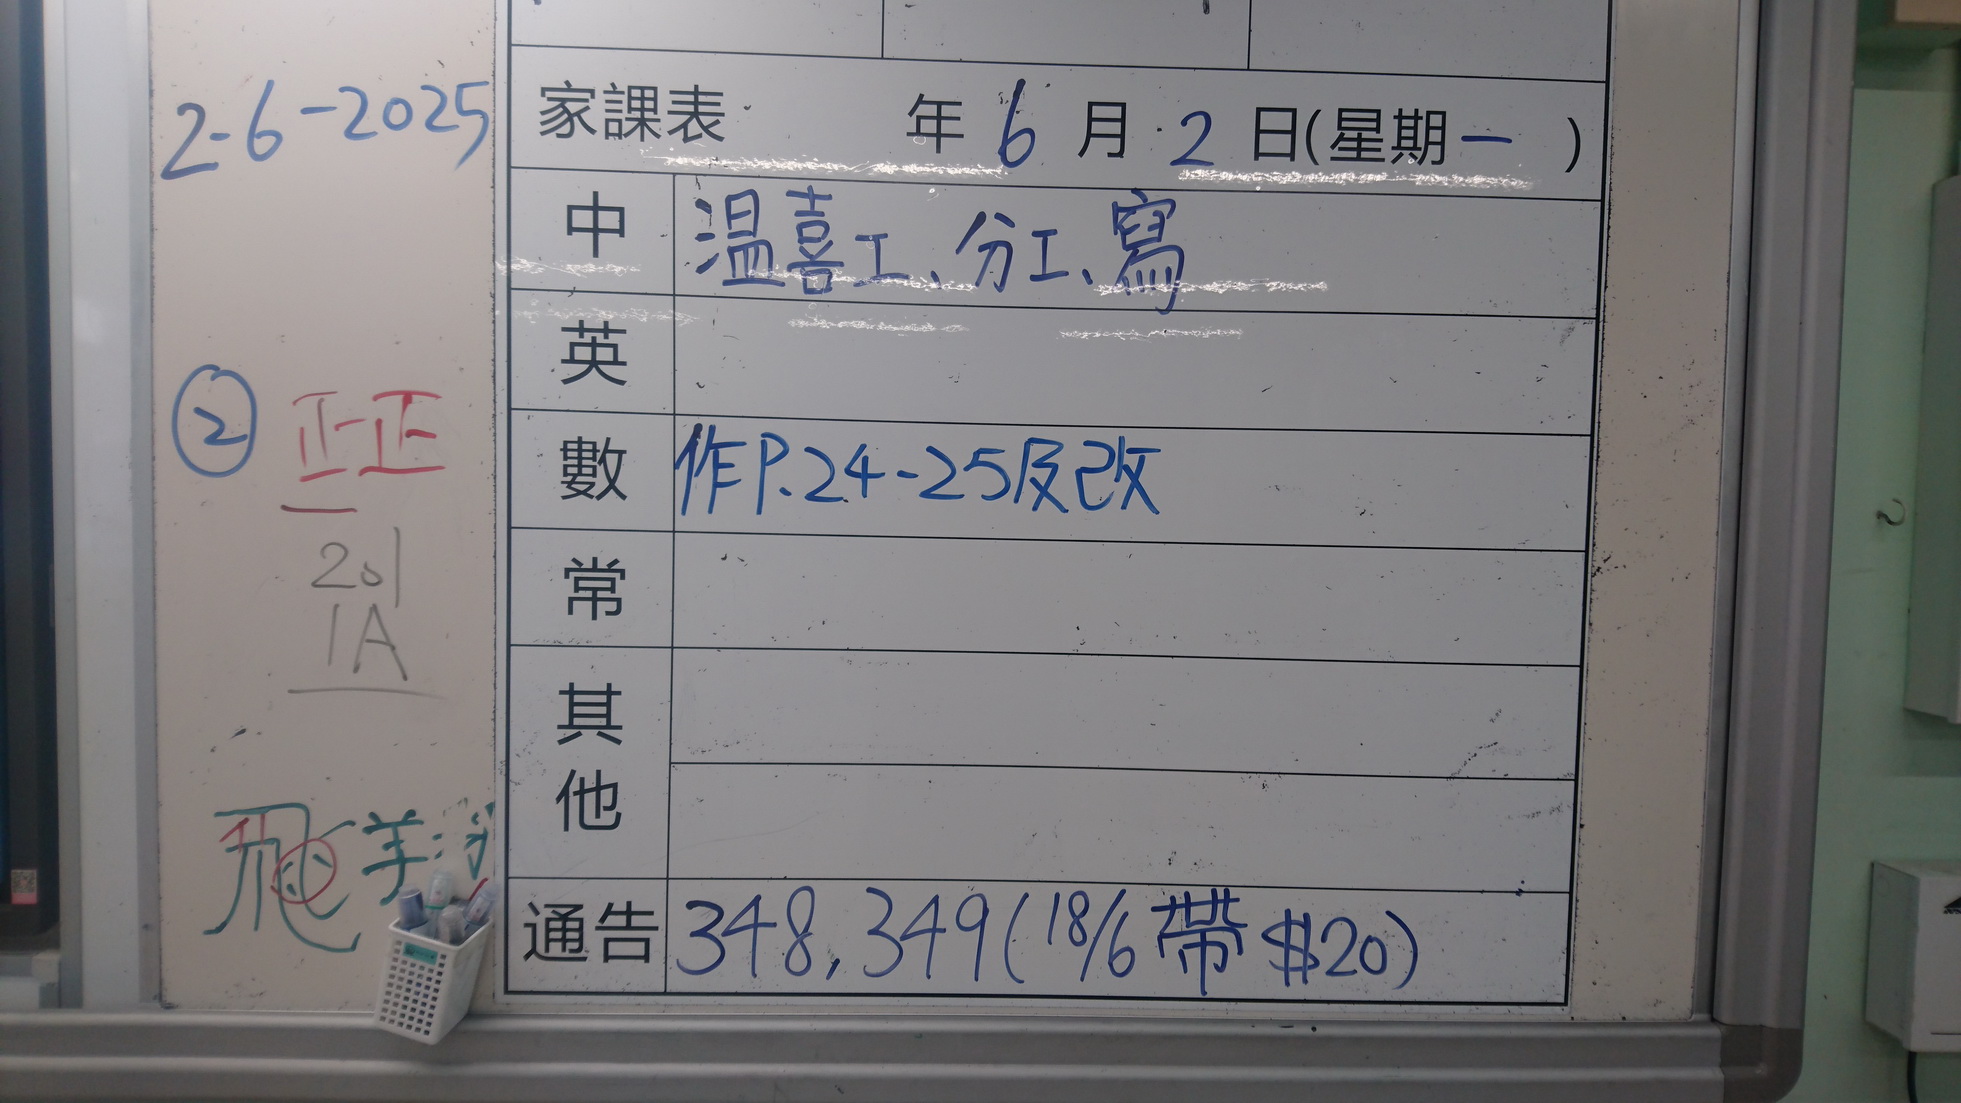 2-6-2025
② 正正
201
1A
飛 羊
家課表 年 6 月 2 日(星期一 )
中 温喜工、分工、寫
英
數 作P.24-25及改
常
其他
通告 348, 349(18/6 帶 $20)